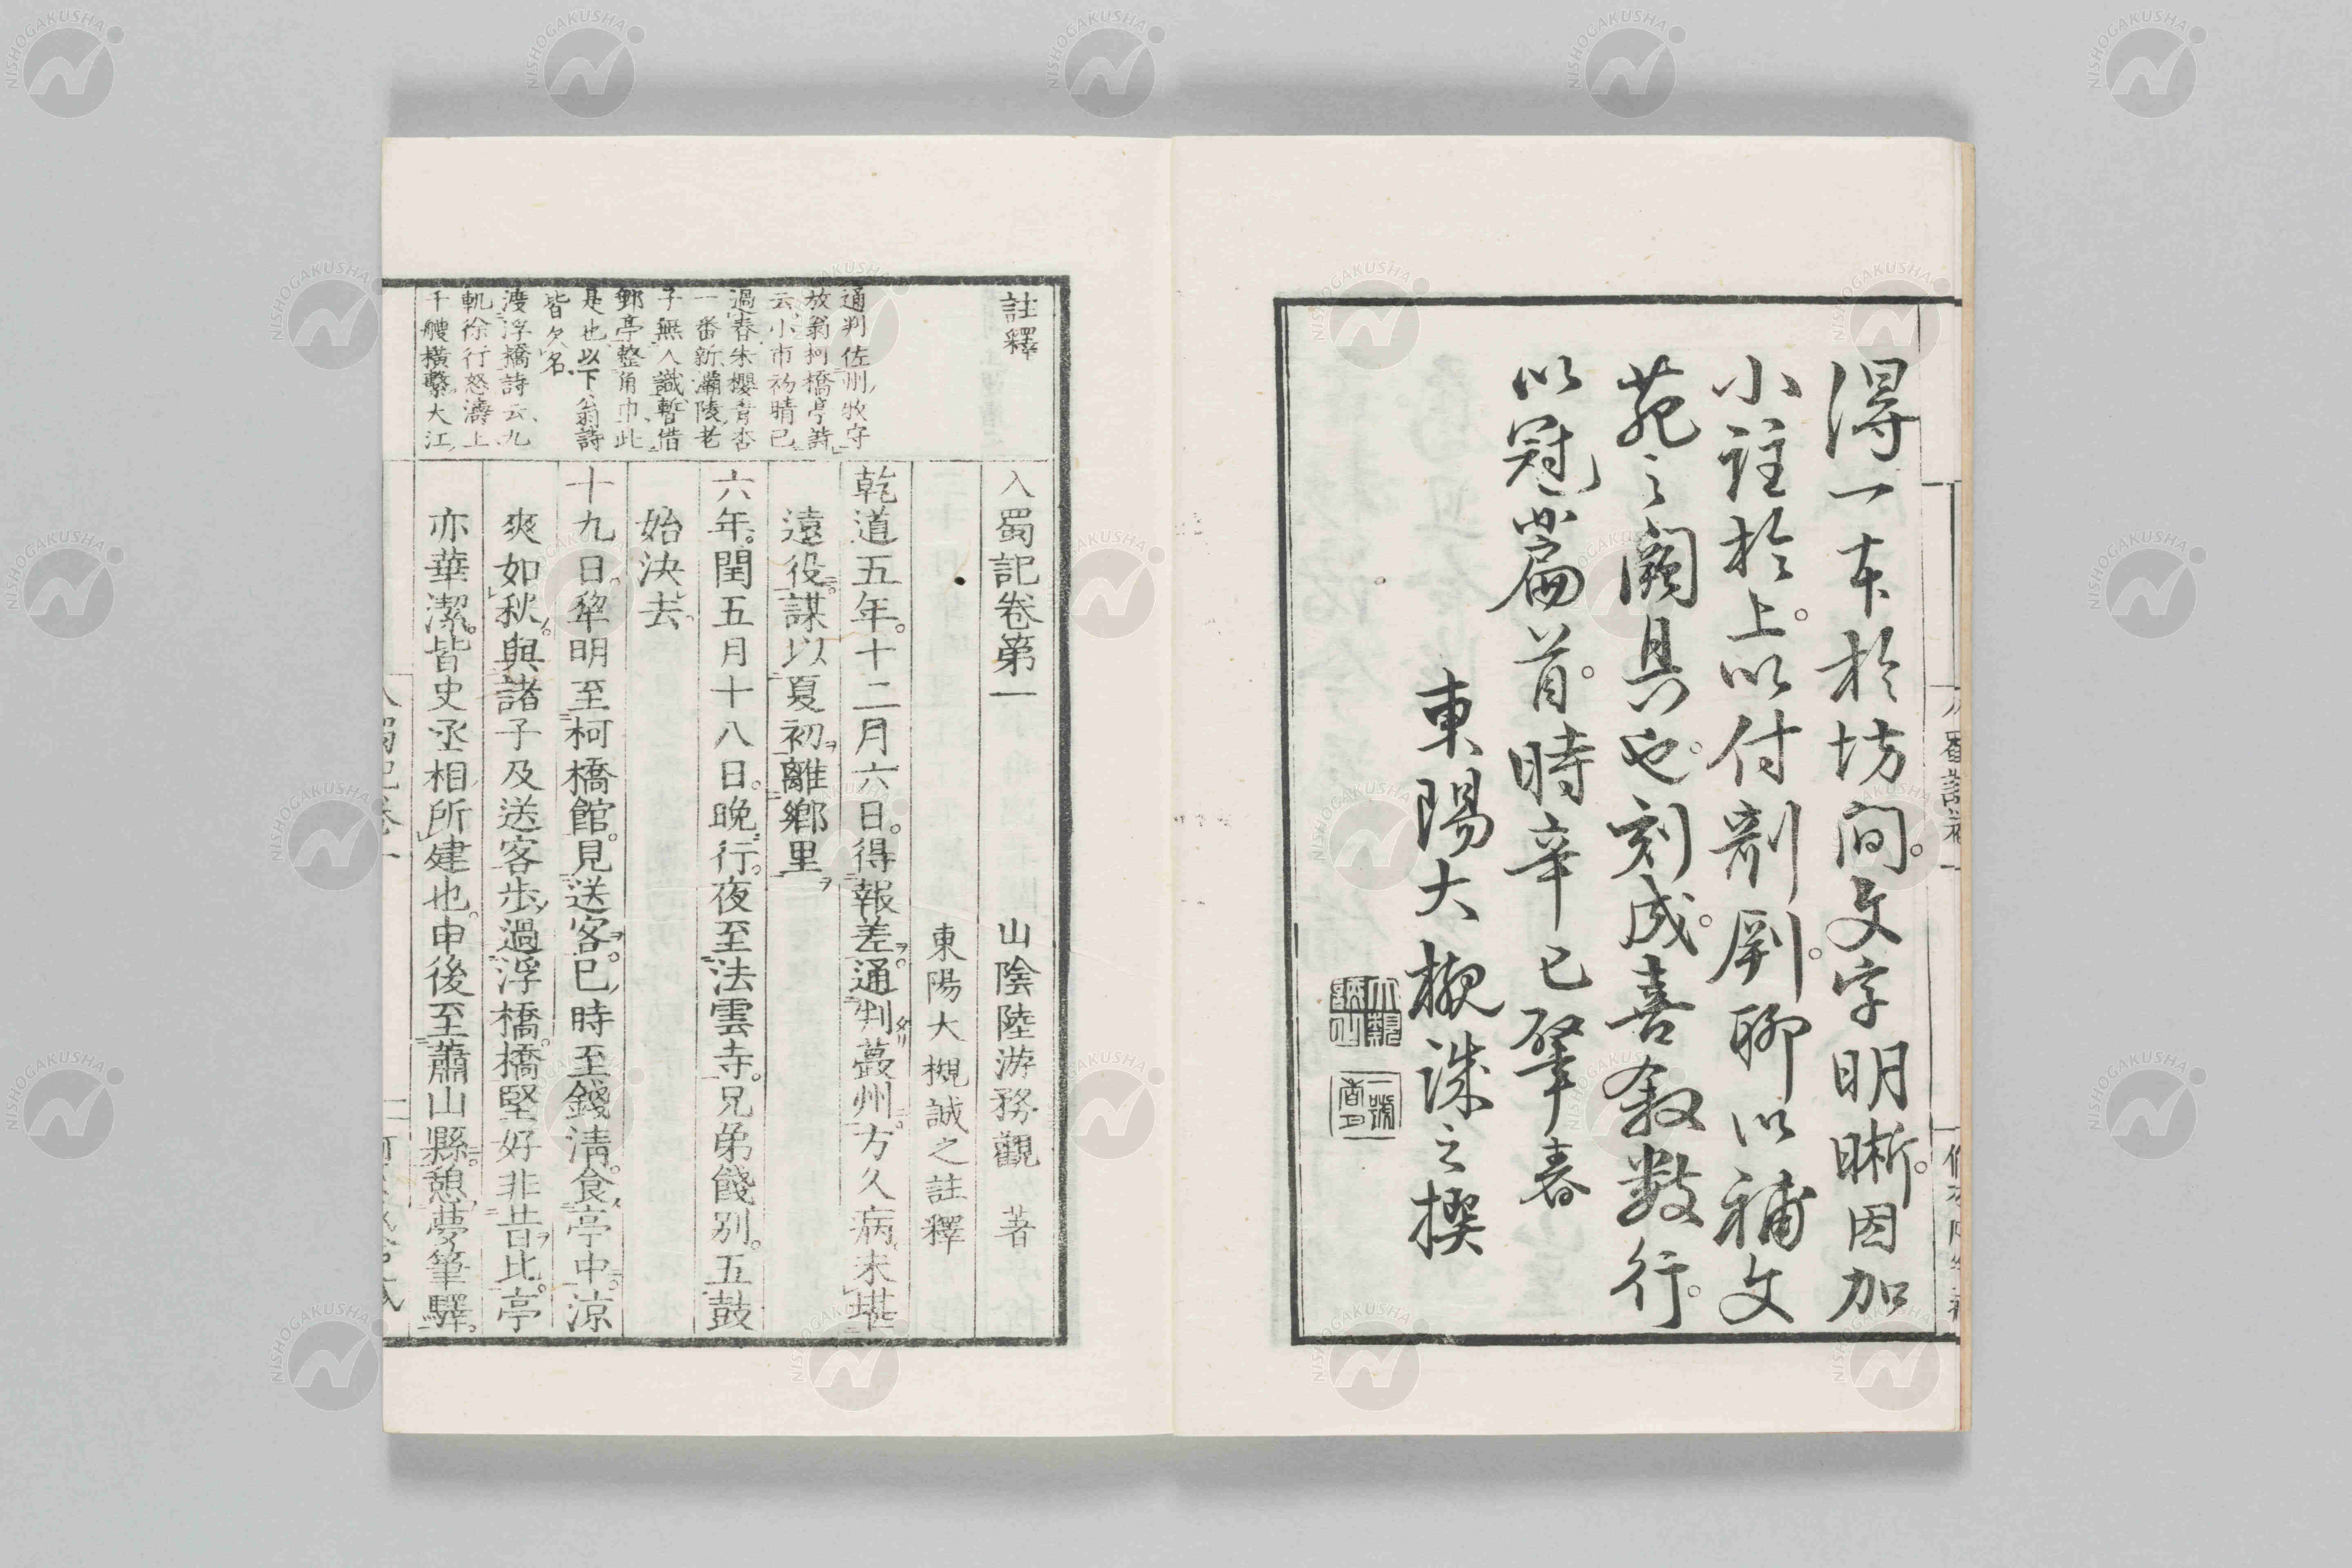 得一本於坊間。文字明晰。因加
小註於上。以付剞劂。聊以補文
苑之闕具也。刻成。喜敘數行。
以冠篇首。時辛巳肇春
東陽大槻誠之撰
入蜀記卷第一 山陰陸游務觀 著
東陽大槻誠之註釋
乾道五年。十二月六日。得報差。通判夔州。方久病。未堪
遠役。謀以夏初離鄉里
六年。閏五月十八日。晚行。夜至法雲寺。兄弟餞別。五鼓
始決去
十九日。犂明至柯橋館。見送客。巳時至錢清。食亭中。涼
爽如秋。與諸子及送客步過浮橋。橋堅好非昔比。亭
亦華潔。皆史丞相所建也。申後至蕭山縣。憩夢筆驛。
註釋
通判佐州牧守
放翁柯橋亭詩
云小市初晴已
過春朱櫻青杏
一番新灞陵老
子無人識暫借
郵亭整角巾此
是也以下翁詩
皆欠名
渡浮橋詩云九
軌徐行怒濤上
千艘橫繫大江
NISHOGAKUSHA